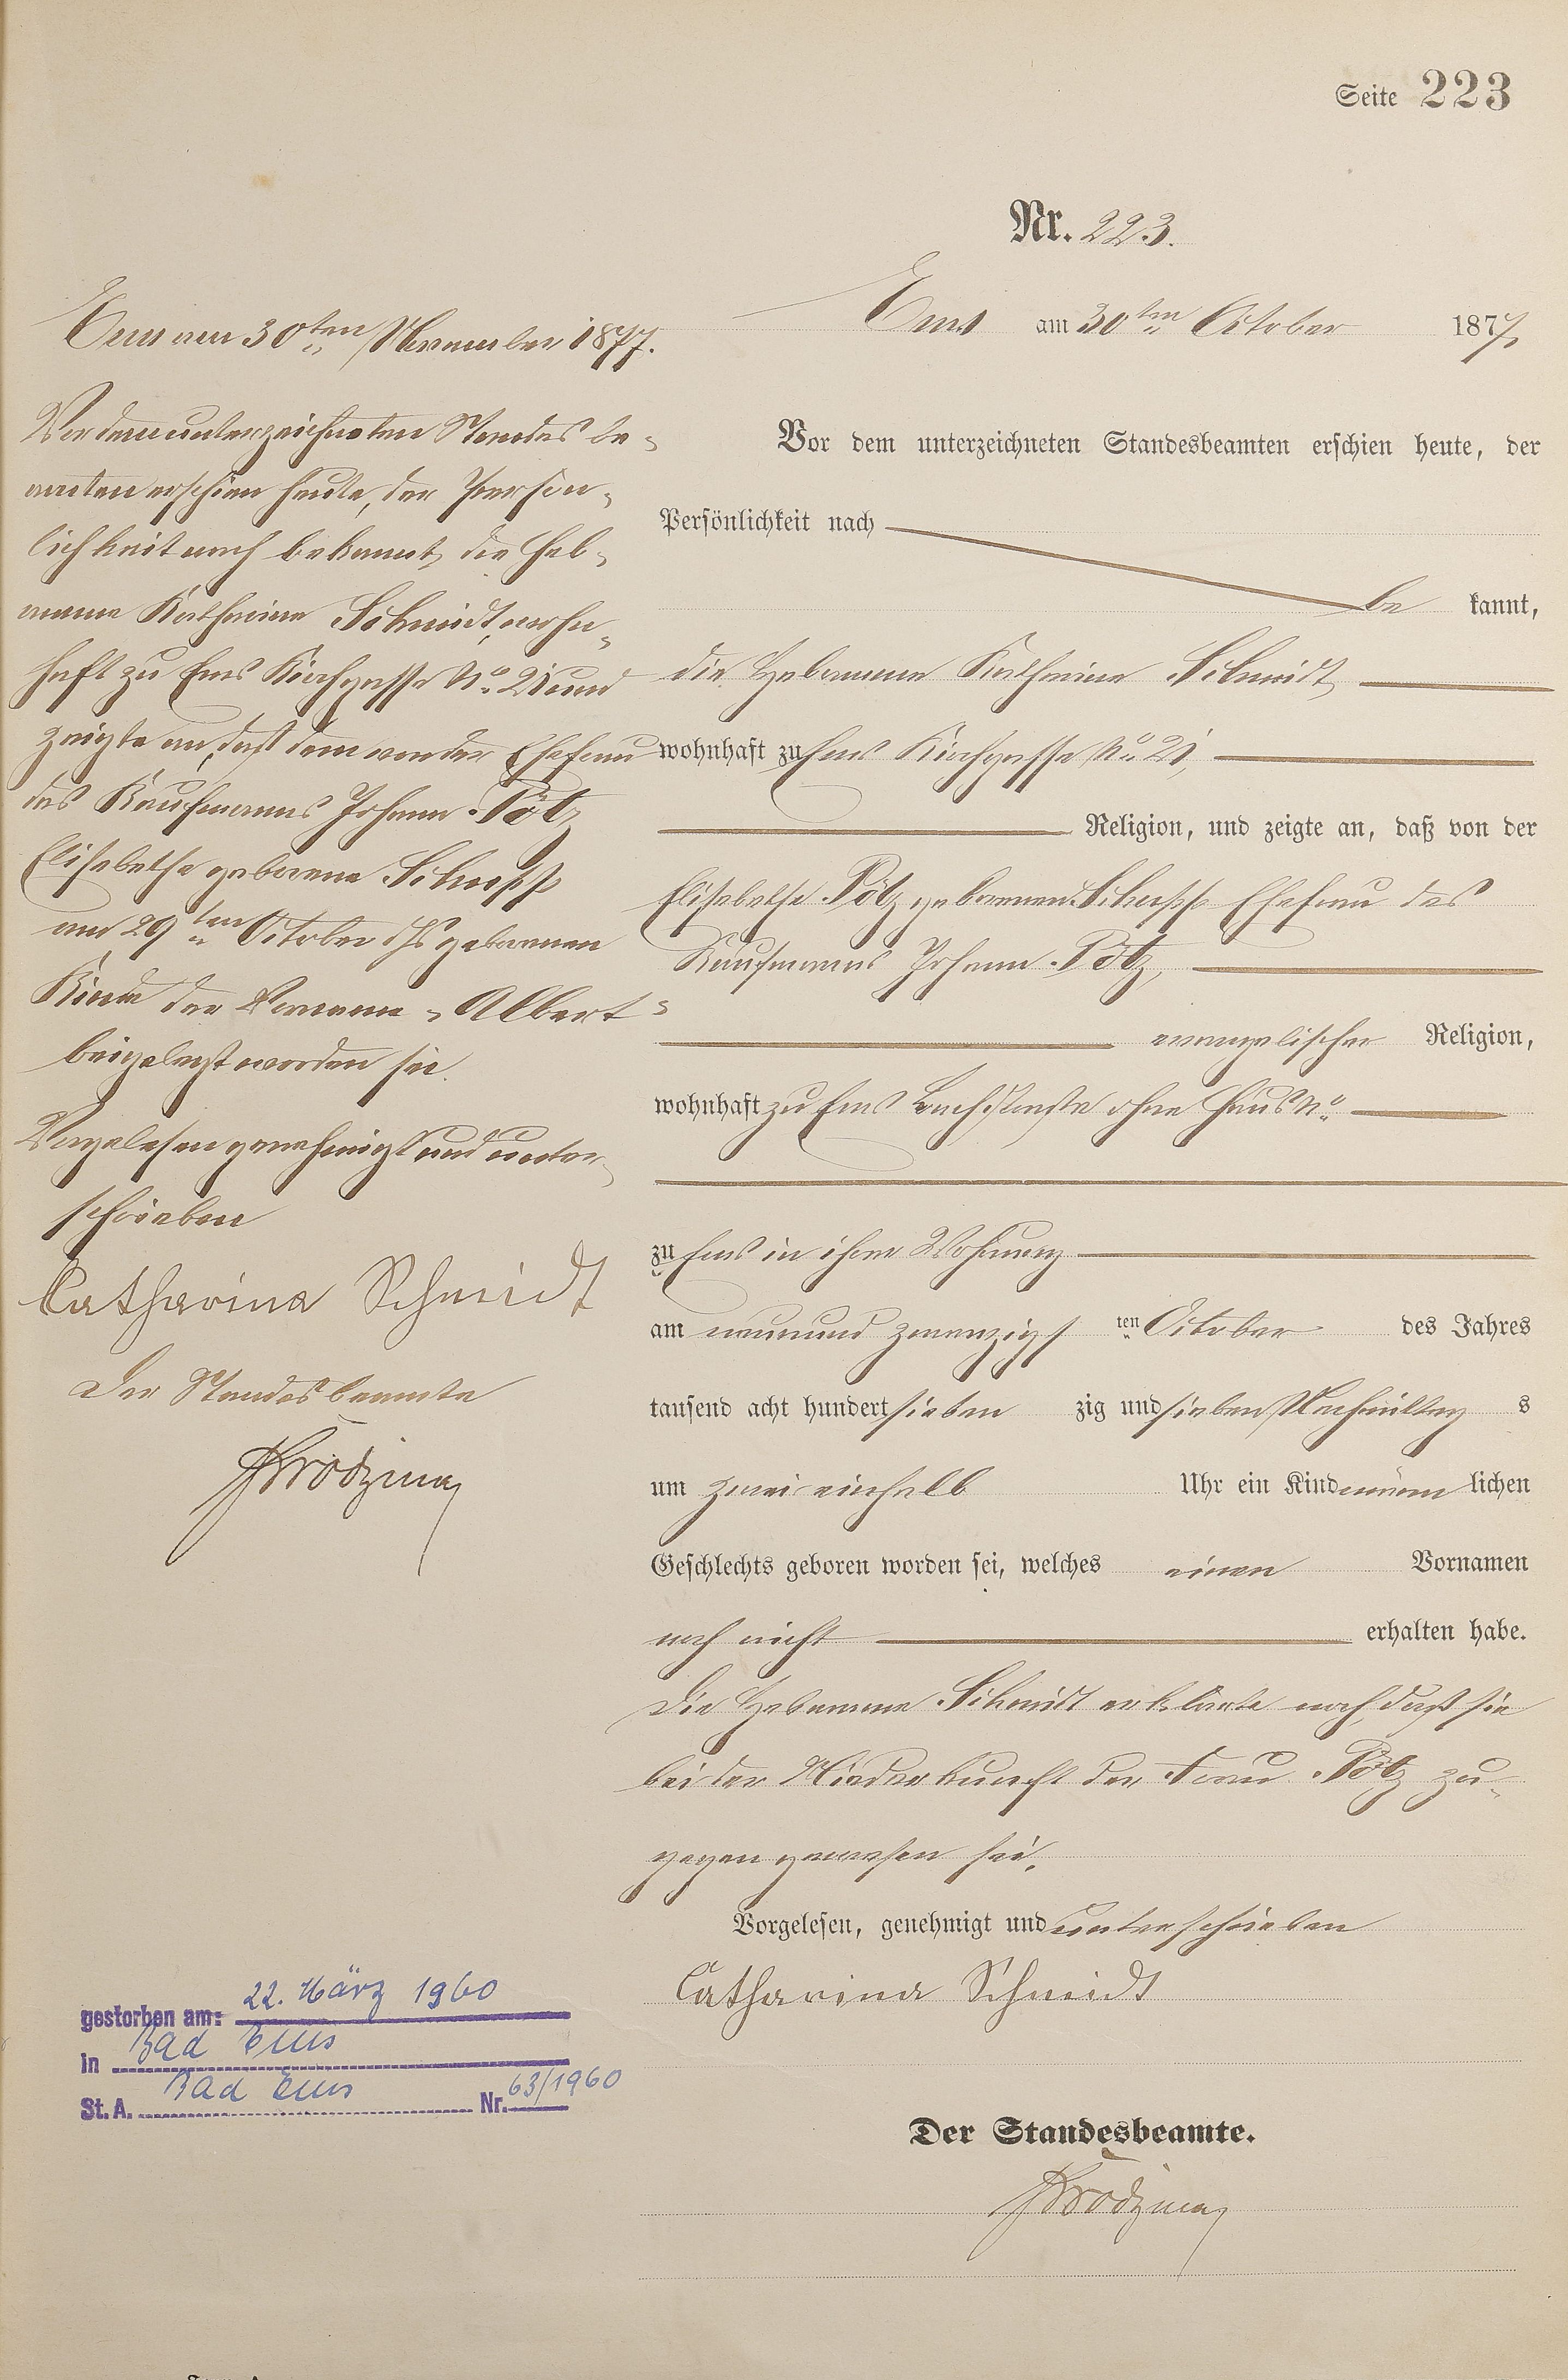 Seite 223
Nr. 223.
Ems am 30ten October 1877.
Vor dem unterzeichneten Standesbeamten erschien heute, der
Persönlichkeit nach
be kannt,
die Hebamme Katharina Schmidt,
wohnhaft zu Ems Kirchgasse No. 21,
Religion, und zeigte an, daß von der
Elisabetha Pötz geborenen Ehefrau des
Kaufmanns Johann Pötz,
evangelischer Religion,
wohnhaft zu Ems Bachstraße ohne Haus No.
zu Ems in ihrer Wohnung
am neunundzwanzigs ten October des Jahres
tausend acht hundert sieben zig und sieben Nachmittag s
um zwei einhalb Uhr ein Kind männ lichen
Geschlechts geboren worden sei, welches einen Vornamen
noch nicht erhalten habe.
Die Hebamme Schmidt erklärte noch, daß sie
bei der Niederkunft der Frau Pötz zu-
gegen gewesen sei.
Vorgelesen, genehmigt und unterschrieben
Catharina Schmidt
Der Standesbeamte.
Ems am 30ten November 1877.
Vor dem unterzeichneten Standesbe-
amten erschien heute, der Persön-
lichkeit nach bekannt, die Heb-
amme Katharina Schmidt, wohn-
haft zu Ems Kirchgasse No. 21 und
zeigte an, daß dem von der Ehefrau
des Kaufmanns Johann Pötz
Elisabetha geborene
am 29ten October ds geborenen
Kinde der Vorname "Albert"
beigelegt worden sei.
Vorgelesen genehmigt und unter-
schrieben
Catharina Schmidt
Der Standesbeamte
gestorben am: 22. März 1960
in Bad Ems
St. A. Bad Ems Nr. 63/1960